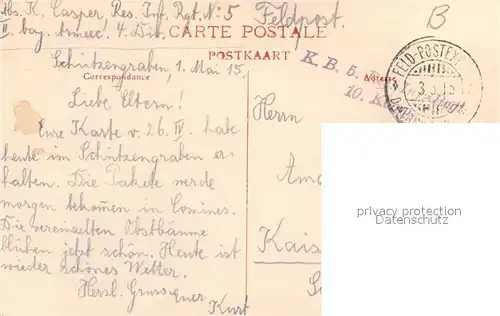 Abs. K. Casper, Res. Inf. Rgt. No 5 Feldpost.
II bay. Armeec. 4. Div.
B
CARTE POSTALE
POSTKAART
Correspondance
Adresse
K.B. 5.
10. K
FELD-POSTEXP
3.5.15
Schützengraben, 1. Mai 15.
Liebe Eltern!
Eure Karte v. 26. IV. habe
heute im Schützengraben er-
halten. Die Pakete werde
morgen bekommen in Comines.
Die vereinzelten Obstbäume
blühen jetzt schön. Heute ist
wieder schönes Wetter.
Herzl. Gruss euer
Kurt
Herrn
Kais
privacy protection
watermark